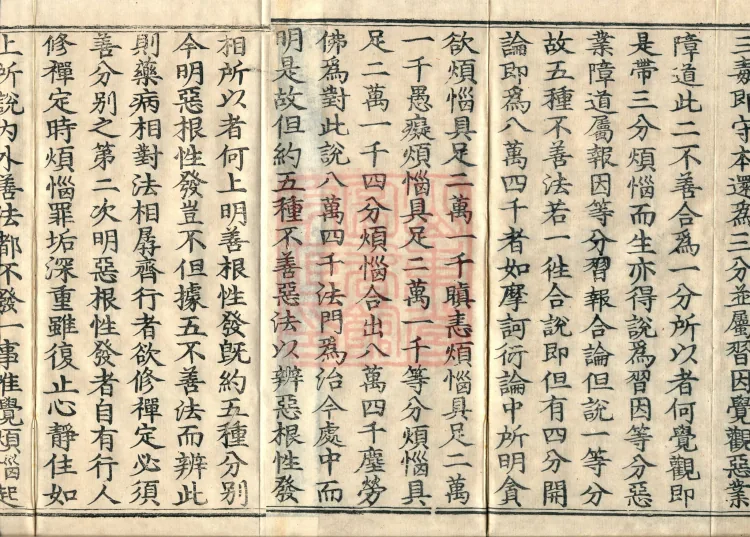 三毒即守本還爲三分並屬習因覺觀惡業
障道此二不善合爲一分所以者何覺觀即
是帶三分煩惱而生亦得說爲習因等分惡
業障道屬報因等分習報合論但說一等分
故五種不善法若一徃合說即但有四分開
論即爲八萬四千者如摩訶衍論中所明貪
欲煩惱具足二萬一千瞋恚煩惱具足二萬
一千愚癡煩惱具足二萬一千等分煩惱具
足二萬一千四分煩惱合出八萬四千塵勞
佛爲對此說八萬四千法門爲治今處中而
明是故但約五種不善惡法以辨惡根性發
相所以者何上明善根性發旣約五種分別
今明惡根性發豈不但據五不善法而辨此
則藥病相對法相孱齊行者欲修禪定必須
善分別之第二次明惡根性發者自有行人
修禪定時煩惱罪垢深重雖復止心靜住如
上所說内外善法都不發一事惟覺煩惱起